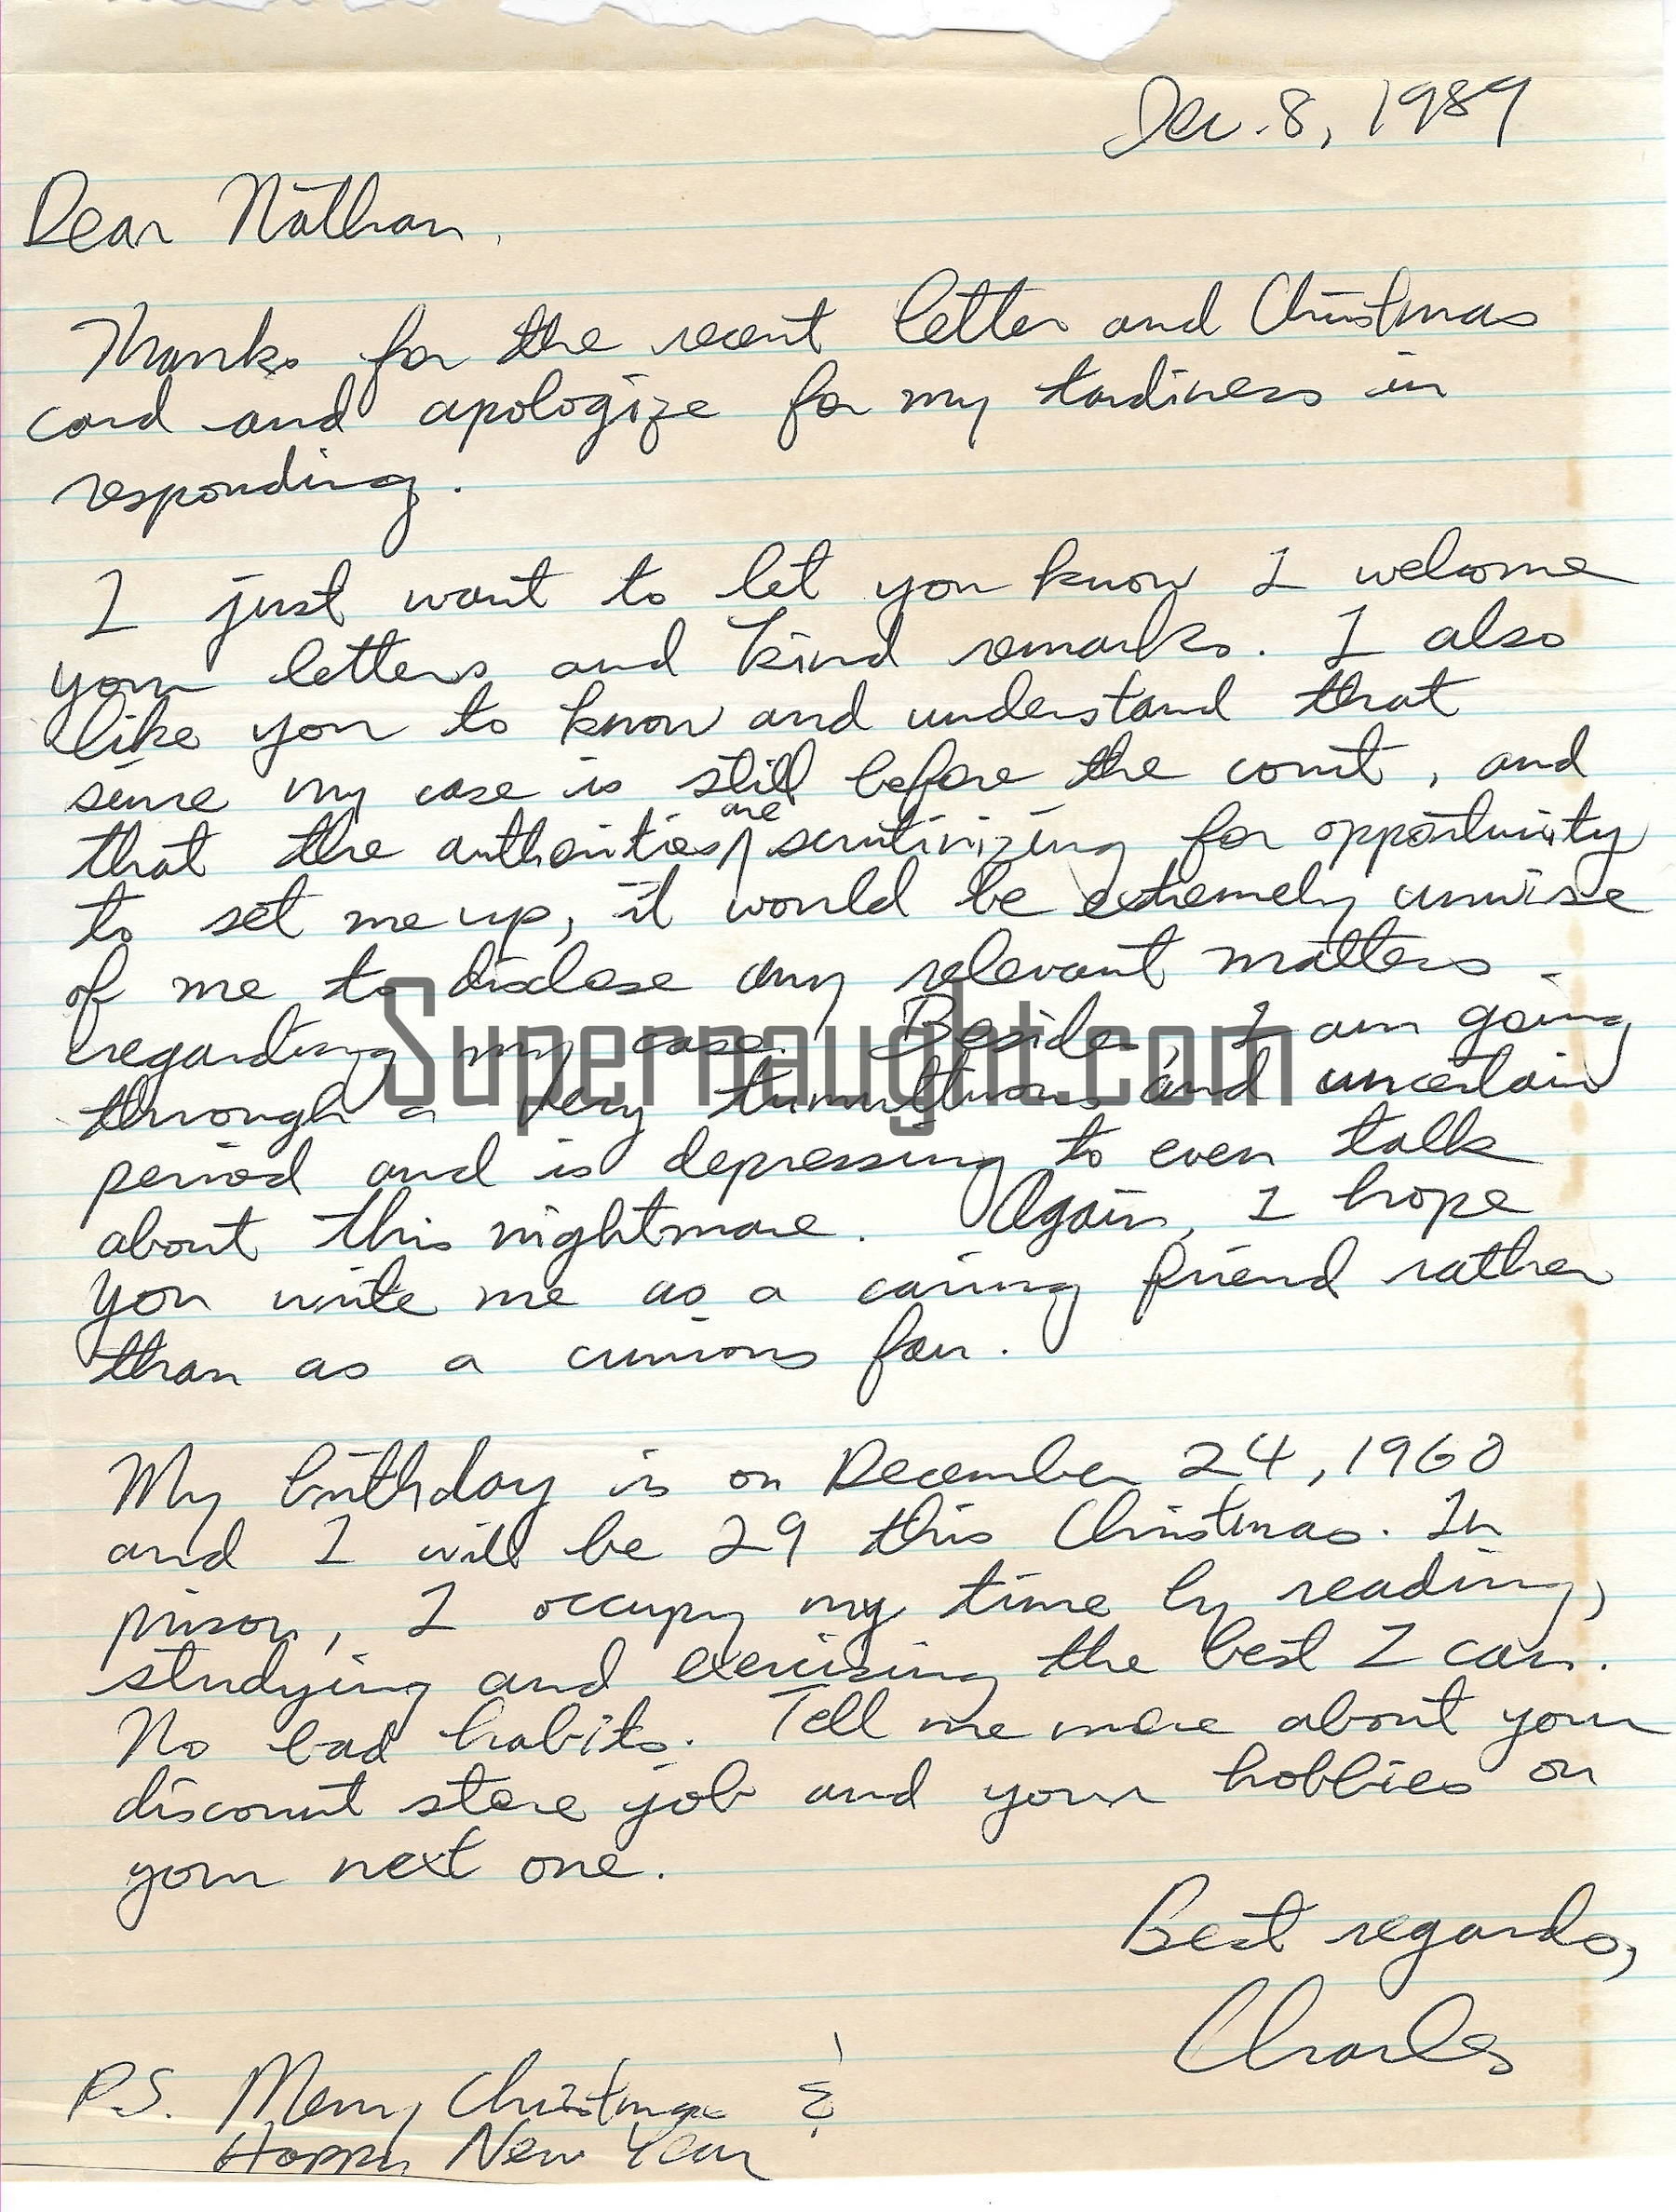 Dec. 8, 1989
Dear Nathan,
Thanks for the recent letter and Christmas
card and apologize for my tardiness in
responding.
I just want to let you know I welcome
your letters and kind remarks. I also
like you to know and understand that
since my case is still before the court, and
that the authorities are scrutinizing for opportunity
to set me up, it would be extremely unwise
of me to disclose any relevant matters
regarding my case. Besides I am going
through a very tumultuous and uncertain
period and is depressing to even talk
about this nightmare. Again, I hope
you write me as a caring friend rather
than as a curious fan.
My birthday is on December 24, 1960
and I will be 29 this Christmas. In
prison, I occupy my time by reading,
studying and exercising the best I can.
No bad habits. Tell me more about your
discount store job and your hobbies on
your next one.
Best regards,
Charles
P.S. Merry Christmas &
Happy New Year
Supernaught.com